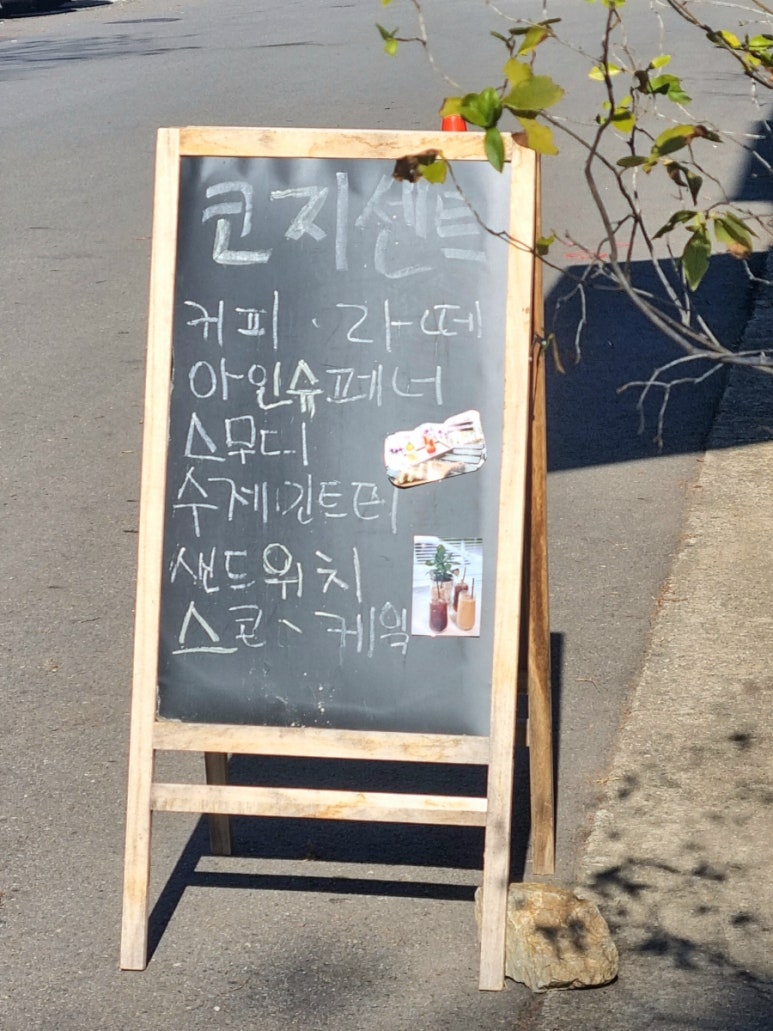 코지센트
커피 · 라떼
아인슈페너
스무디
수제 인트터
샌드위치
스콘、케잌